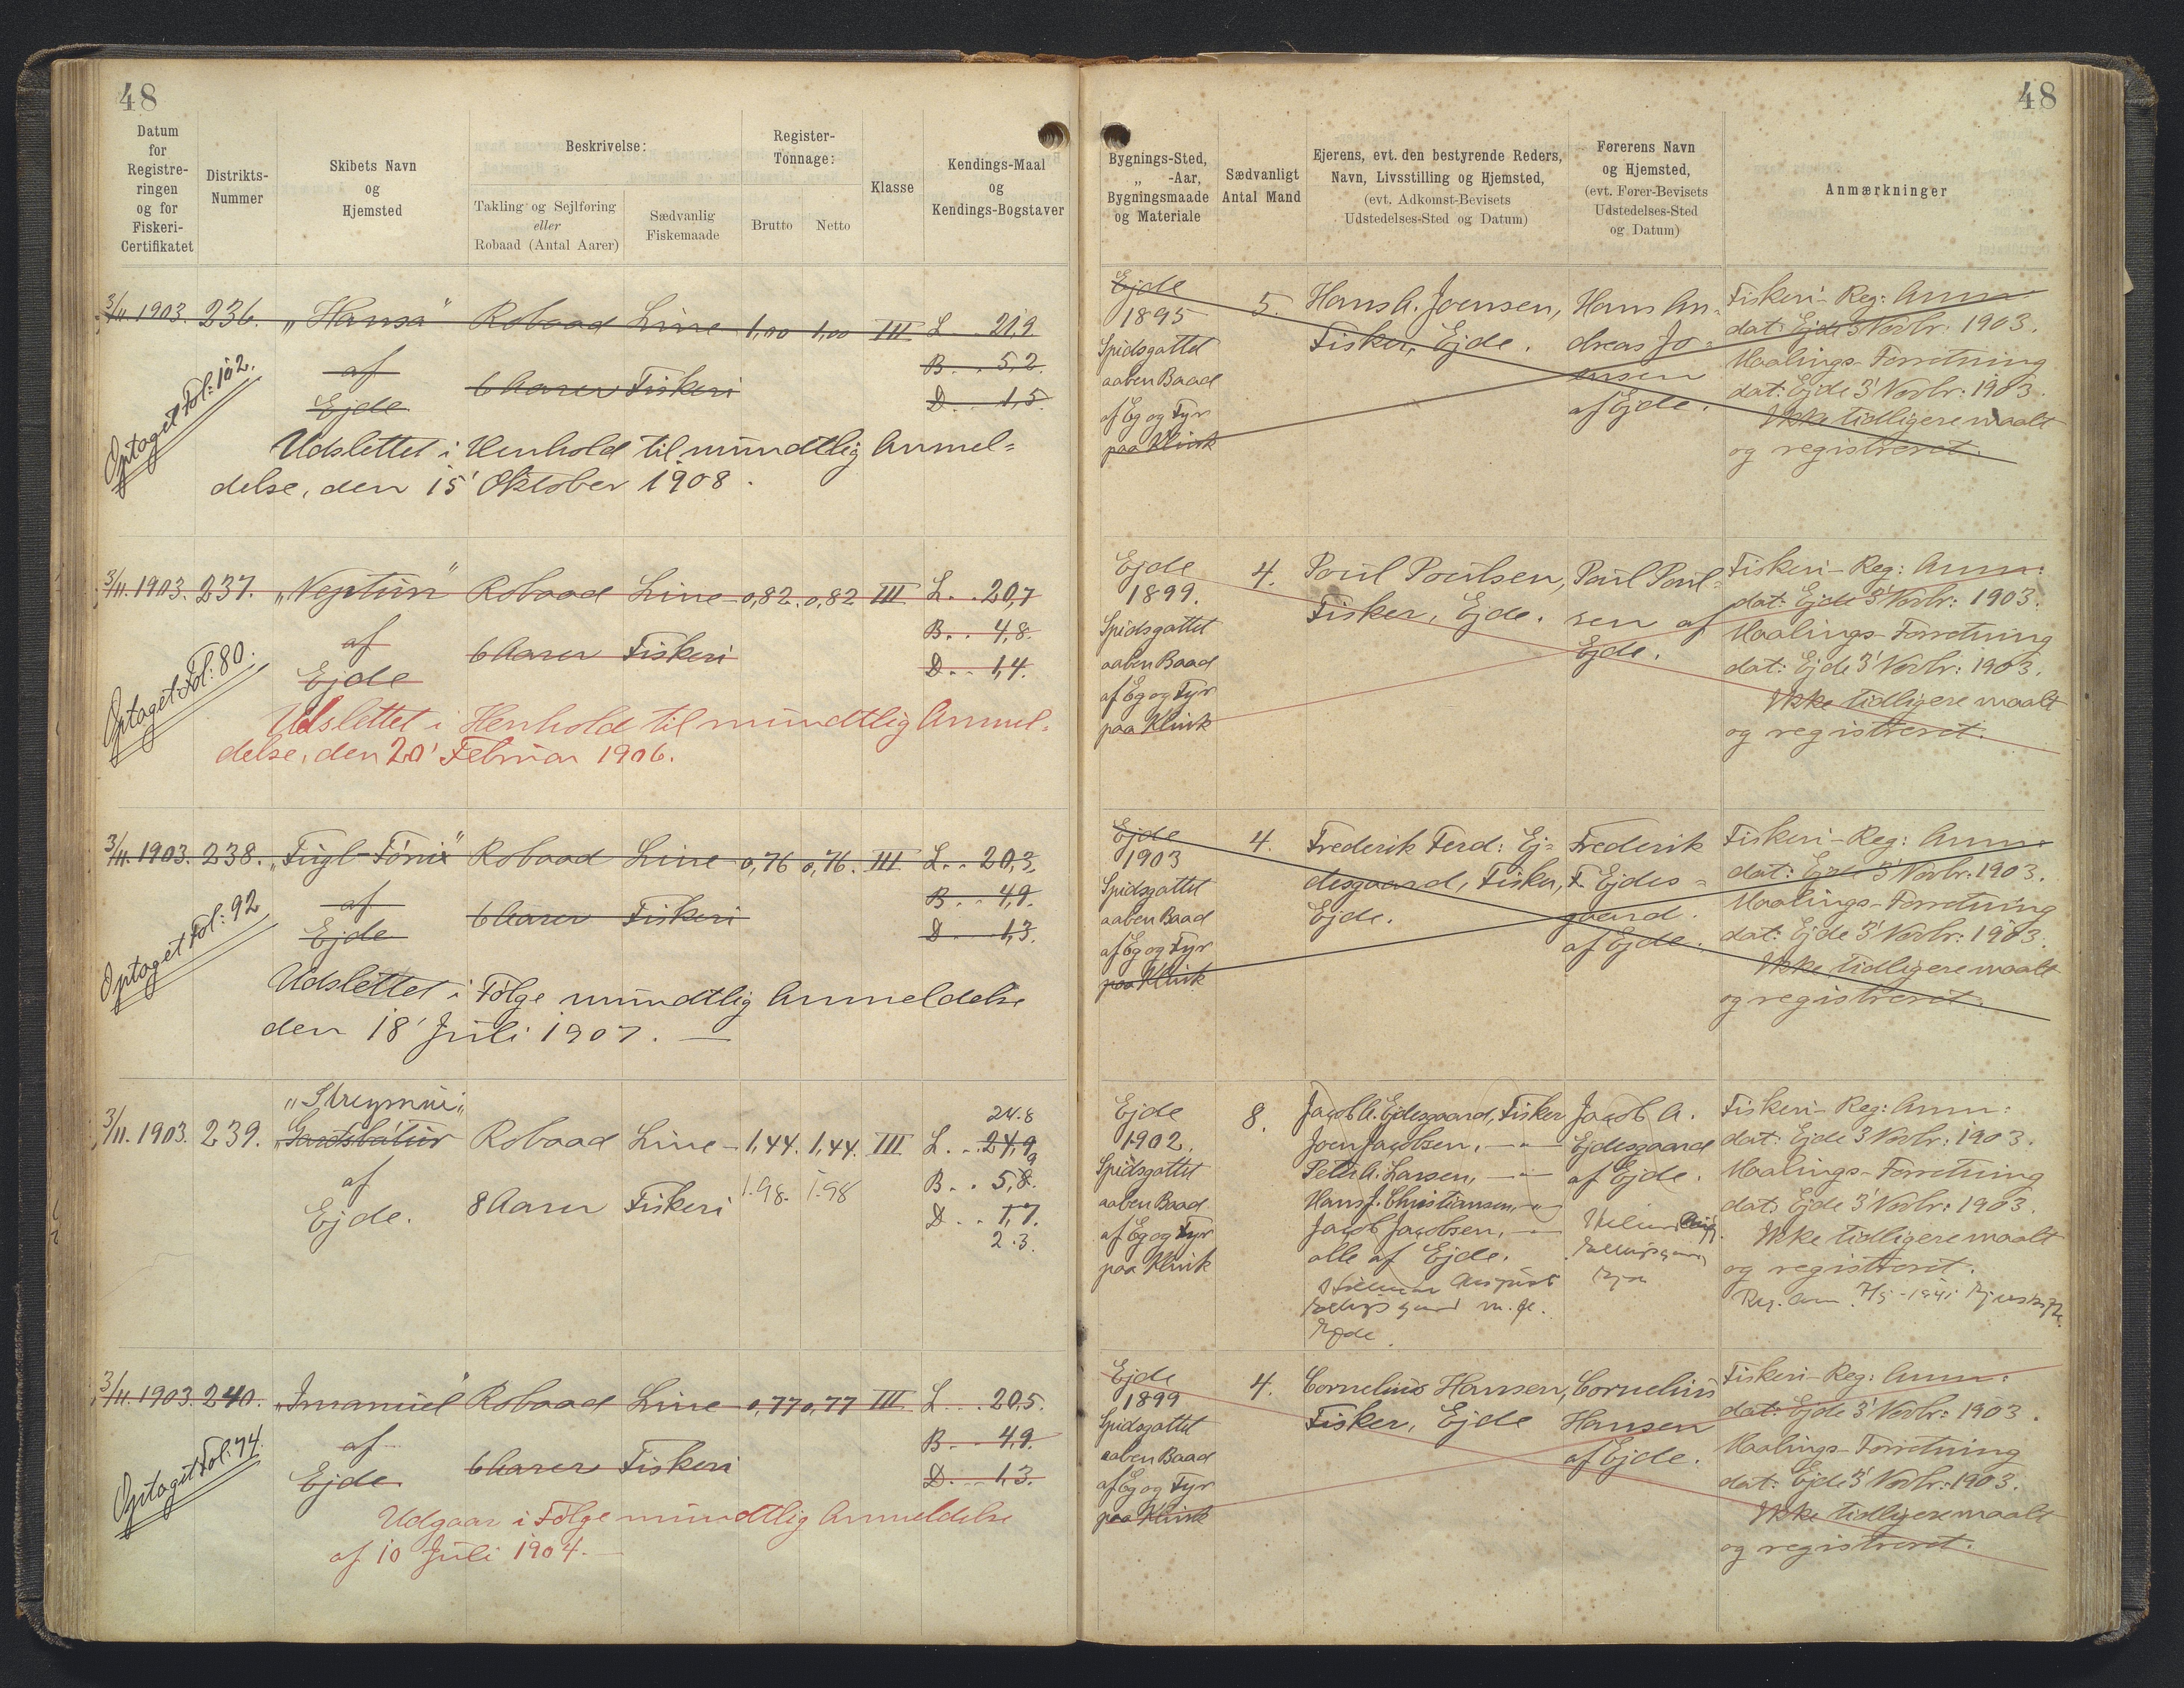 48
Datum
for
Registre-
ringen
og for
Fiskeri-
Certifikatet
Distrikts-
Nummer
Skibets Navn
og
Hjemsted
Beskrivelse:
Takling og Sejlføring
eller
Robaad (Antal Aarer)
Sædvanlig
Fiskemaade
Register-
Tonnage:
Brutto
Netto
Klasse
Kendings-Maal
og
Kendings-Bogstaver
3/11. 1903. 236. „Hansa" Robaad Line 1,00 1,00 III L. . 21,9
af B. . . 5,2.
6 Aarer Fiskeri
Ejde D. . . 1,5.
Optaget Fol: 102.
Udslettet i Henhold til mundtlig Anmel=
delse, den 15' Oktober 1908.
3/11. 1903. 237. „Neptun" Robaad Line 0,82. 0,82 III L. . 20,7
af B. . 4,8.
6 Aarer Fiskeri
Ejde D. . . 1,4.
Optaget Fol: 80.
Udslettet i Henhold til mundtlig Anmel=
delse, den 20' Februar 1906.
3/11. 1903. 238. „Fugl-Fönix" Robaad Line 0,76 0,76. III L. . 20,3
af B. . . 4,9.
6 Aarer Fiskeri
Ejde D. . . 1,3.
Optaget Fol: 92
Udslettet i Følge mundtlig Anmeldelse
den 18' Juli 1907. —
„Streymur"
24.8
3/11. 1903. 239. „Gardsbátur Robaad Line 1,44. 1,44. III L. . . 24,9
af B. . 5,8.
8 Aarer Fiskeri 1.98. 1.98
Ejde. D. . 1,7.
2.3.
3/11. 1903. 240. „Imanuel" Robaad Line 0,77 0,77 III L. . . 20,5.
af B. . 4,9.
6 Aarer Fiskeri
Ejde D. . . 1,3.
Optaget Fol: 74.
Udgaar i Følge mundtlig Anmeldelse
af 10 Juli 1904. —
48
Bygnings-Sted,
„ -Aar,
Bygningsmaade
og Materiale
Sædvanligt
Antal Mand
Ejerens, evt. den bestyrende Reders,
Navn, Livsstilling og Hjemsted,
(evt. Adkomst-Bevisets
Udstedelses-Sted og Datum)
Førerens Navn
og Hjemsted,
(evt. Fører-Bevisets
Udstedelses-Sted
og Datum)
Anmærkninger
Ejde
1895
Spidsgattet
aaben Baad
af Eg og Fyr
paa Klink
5.
Hans A. Joensen,
Fisker, Ejde.
Hans An=
dreas Jo=
ensen
af Ejde.
Fiskeri-Reg: Anm:
dat: Ejde 3' Novbr: 1903.
Maalings-Forretning
dat: Ejde 3' Novbr: 1903.
Ikke tidligere maalt
og registreret.
Ejde
1899.
Spidsgattet
aaben Baad
af Eg og Fyr
paa Klink
4.
Poul Poulsen,
Fisker, Ejde.
Poul Poul=
sen af
Ejde.
Fiskeri-Reg: Anm:
dat: Ejde 3' Novbr: 1903.
Maalings-Forretning
dat: Ejde 3' Novbr: 1903.
Ikke tidligere maalt
og registreret.
Ejde
1903
Spidsgattet
aaben Baad
af Eg og Fyr
paa Klink
4.
Frederik Ferd: Ej=
desgaard, Fisker,
Ejde.
Frederik
F. Ejdes=
gaard.
af Ejde.
Fiskeri-Reg: Anm:
dat: Ejde 3' Novbr: 1903.
Maalings-Forretning
dat: Ejde 3' Novbr: 1903.
Ikke tidligere maalt
og registreret.
Ejde
1902.
Spidsgattet
aaben Baad
af Eg og Fyr
paa Klink
8.
Jacob A. Ejdesgaard, Fisker
Joen Jacobsen, — „ —
Peter A. Larsen, — „ —
Hans J. Christiansen, — „ —
Jacob Jacobsen, — „ —
alle af Ejde.
August
m. fl.
Ejde
Jacob A.
Ejdesgaard
af Ejde.
Fiskeri-Reg: Anm:
dat: Ejde 3' Novbr: 1903.
Maalings-Forretning
dat: Ejde 3' Novbr: 1903.
Ikke tidligere maalt
og registreret.
Reg. Anm.
Ejde
1899
Spidsgattet
aaben Baad
af Eg og Fyr
paa Klink
4.
Cornelius Hansen,
Fisker, Ejde
Cornelius
Hansen
af Ejde.
Fiskeri-Reg: Anm:
dat: Ejde 3' Novbr: 1903.
Maalings-Forretning
dat: Ejde 3' Novbr: 1903.
Ikke tidligere maalt
og registreret.